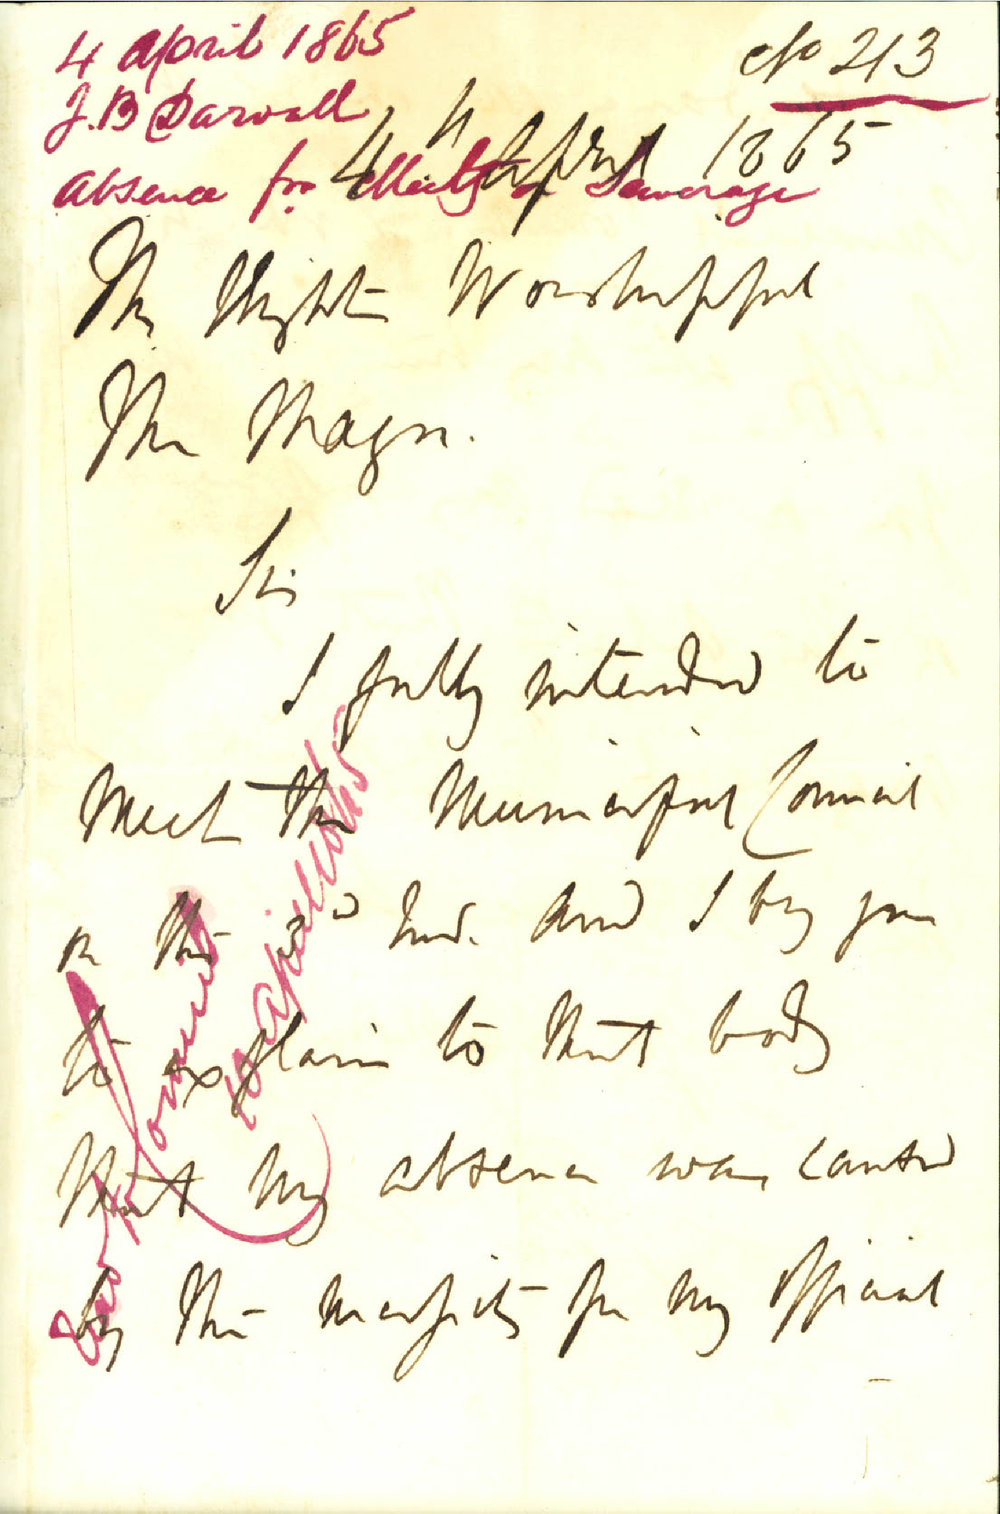 4 April 1865
No 213
J.B Darvall
Absence for Meetg on Sewerage
4th April 1865
The Right Worshipful
The Mayor.
Sir
I fully intended to
Meet the Municipal Council
on the 3rd Inst. and I beg you
to explain to that body
that my absence was caused
by the necessity for my official
10 April 1865